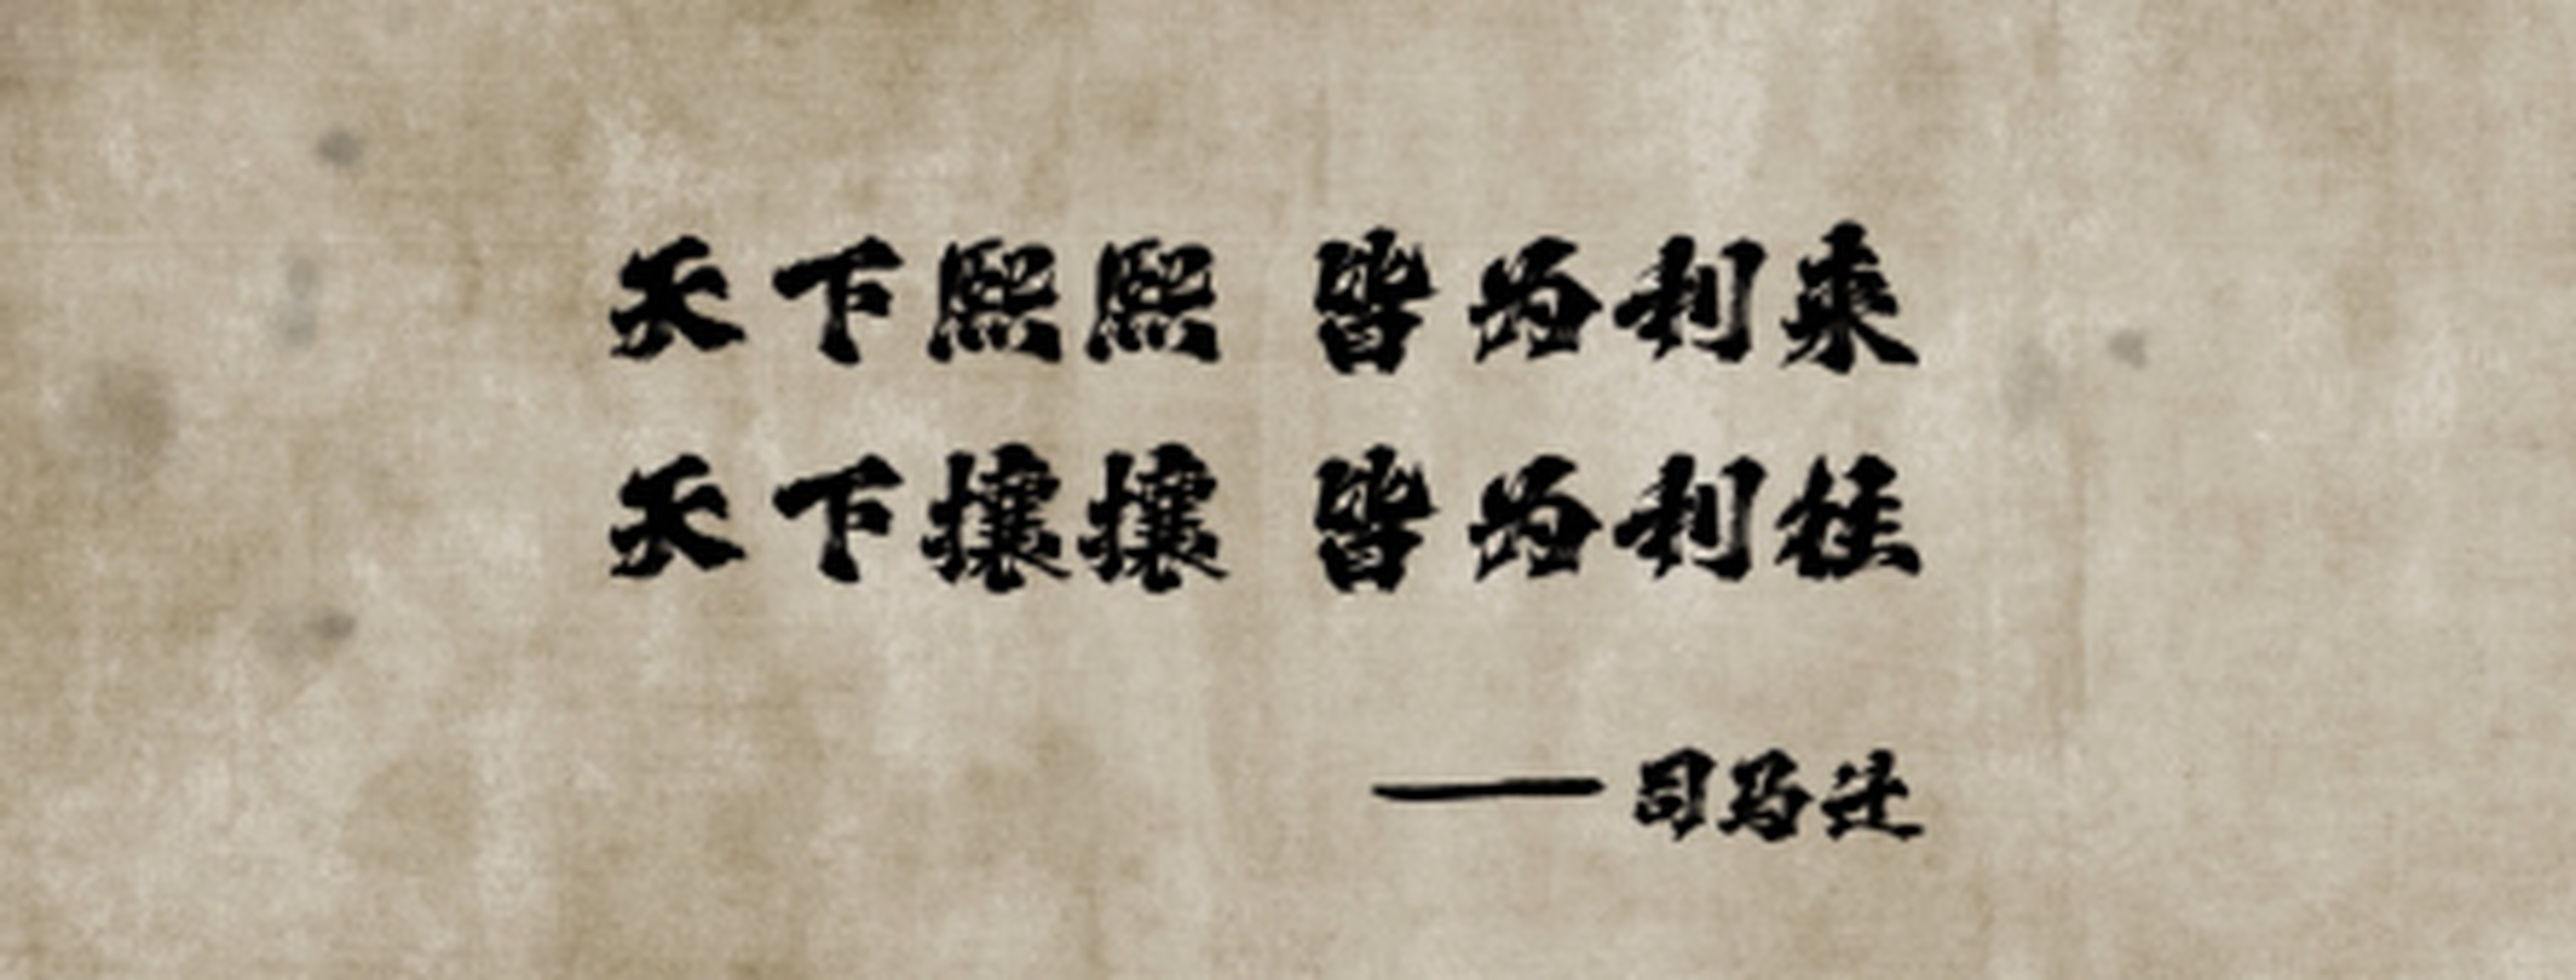 天下熙熙 皆为利来
天下攘攘 皆为利往
——司马迁